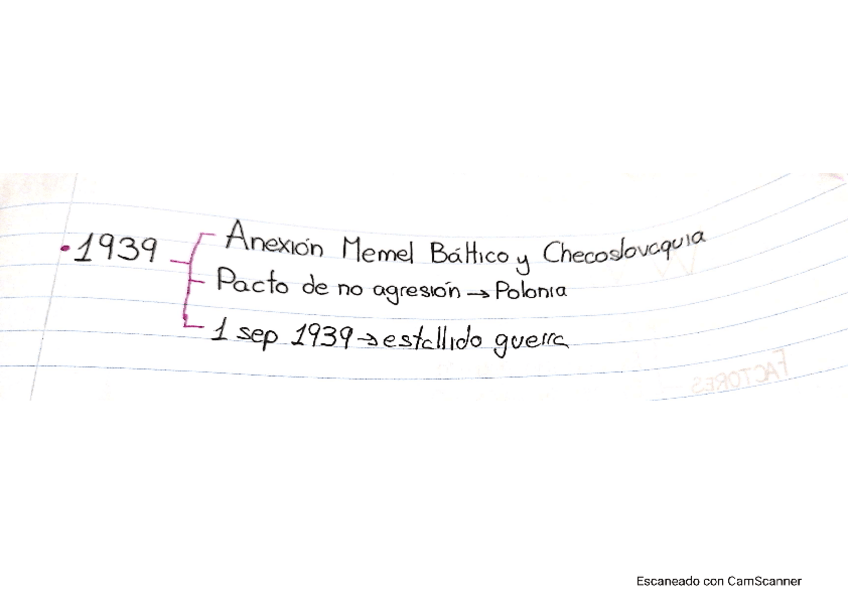 • 1939
Anexión Memel Báltico y Checoslovaquia
Pacto de no agresión → Polonia
1 sep 1939 → estallido guerra
FACTORES
Escaneado con CamScanner